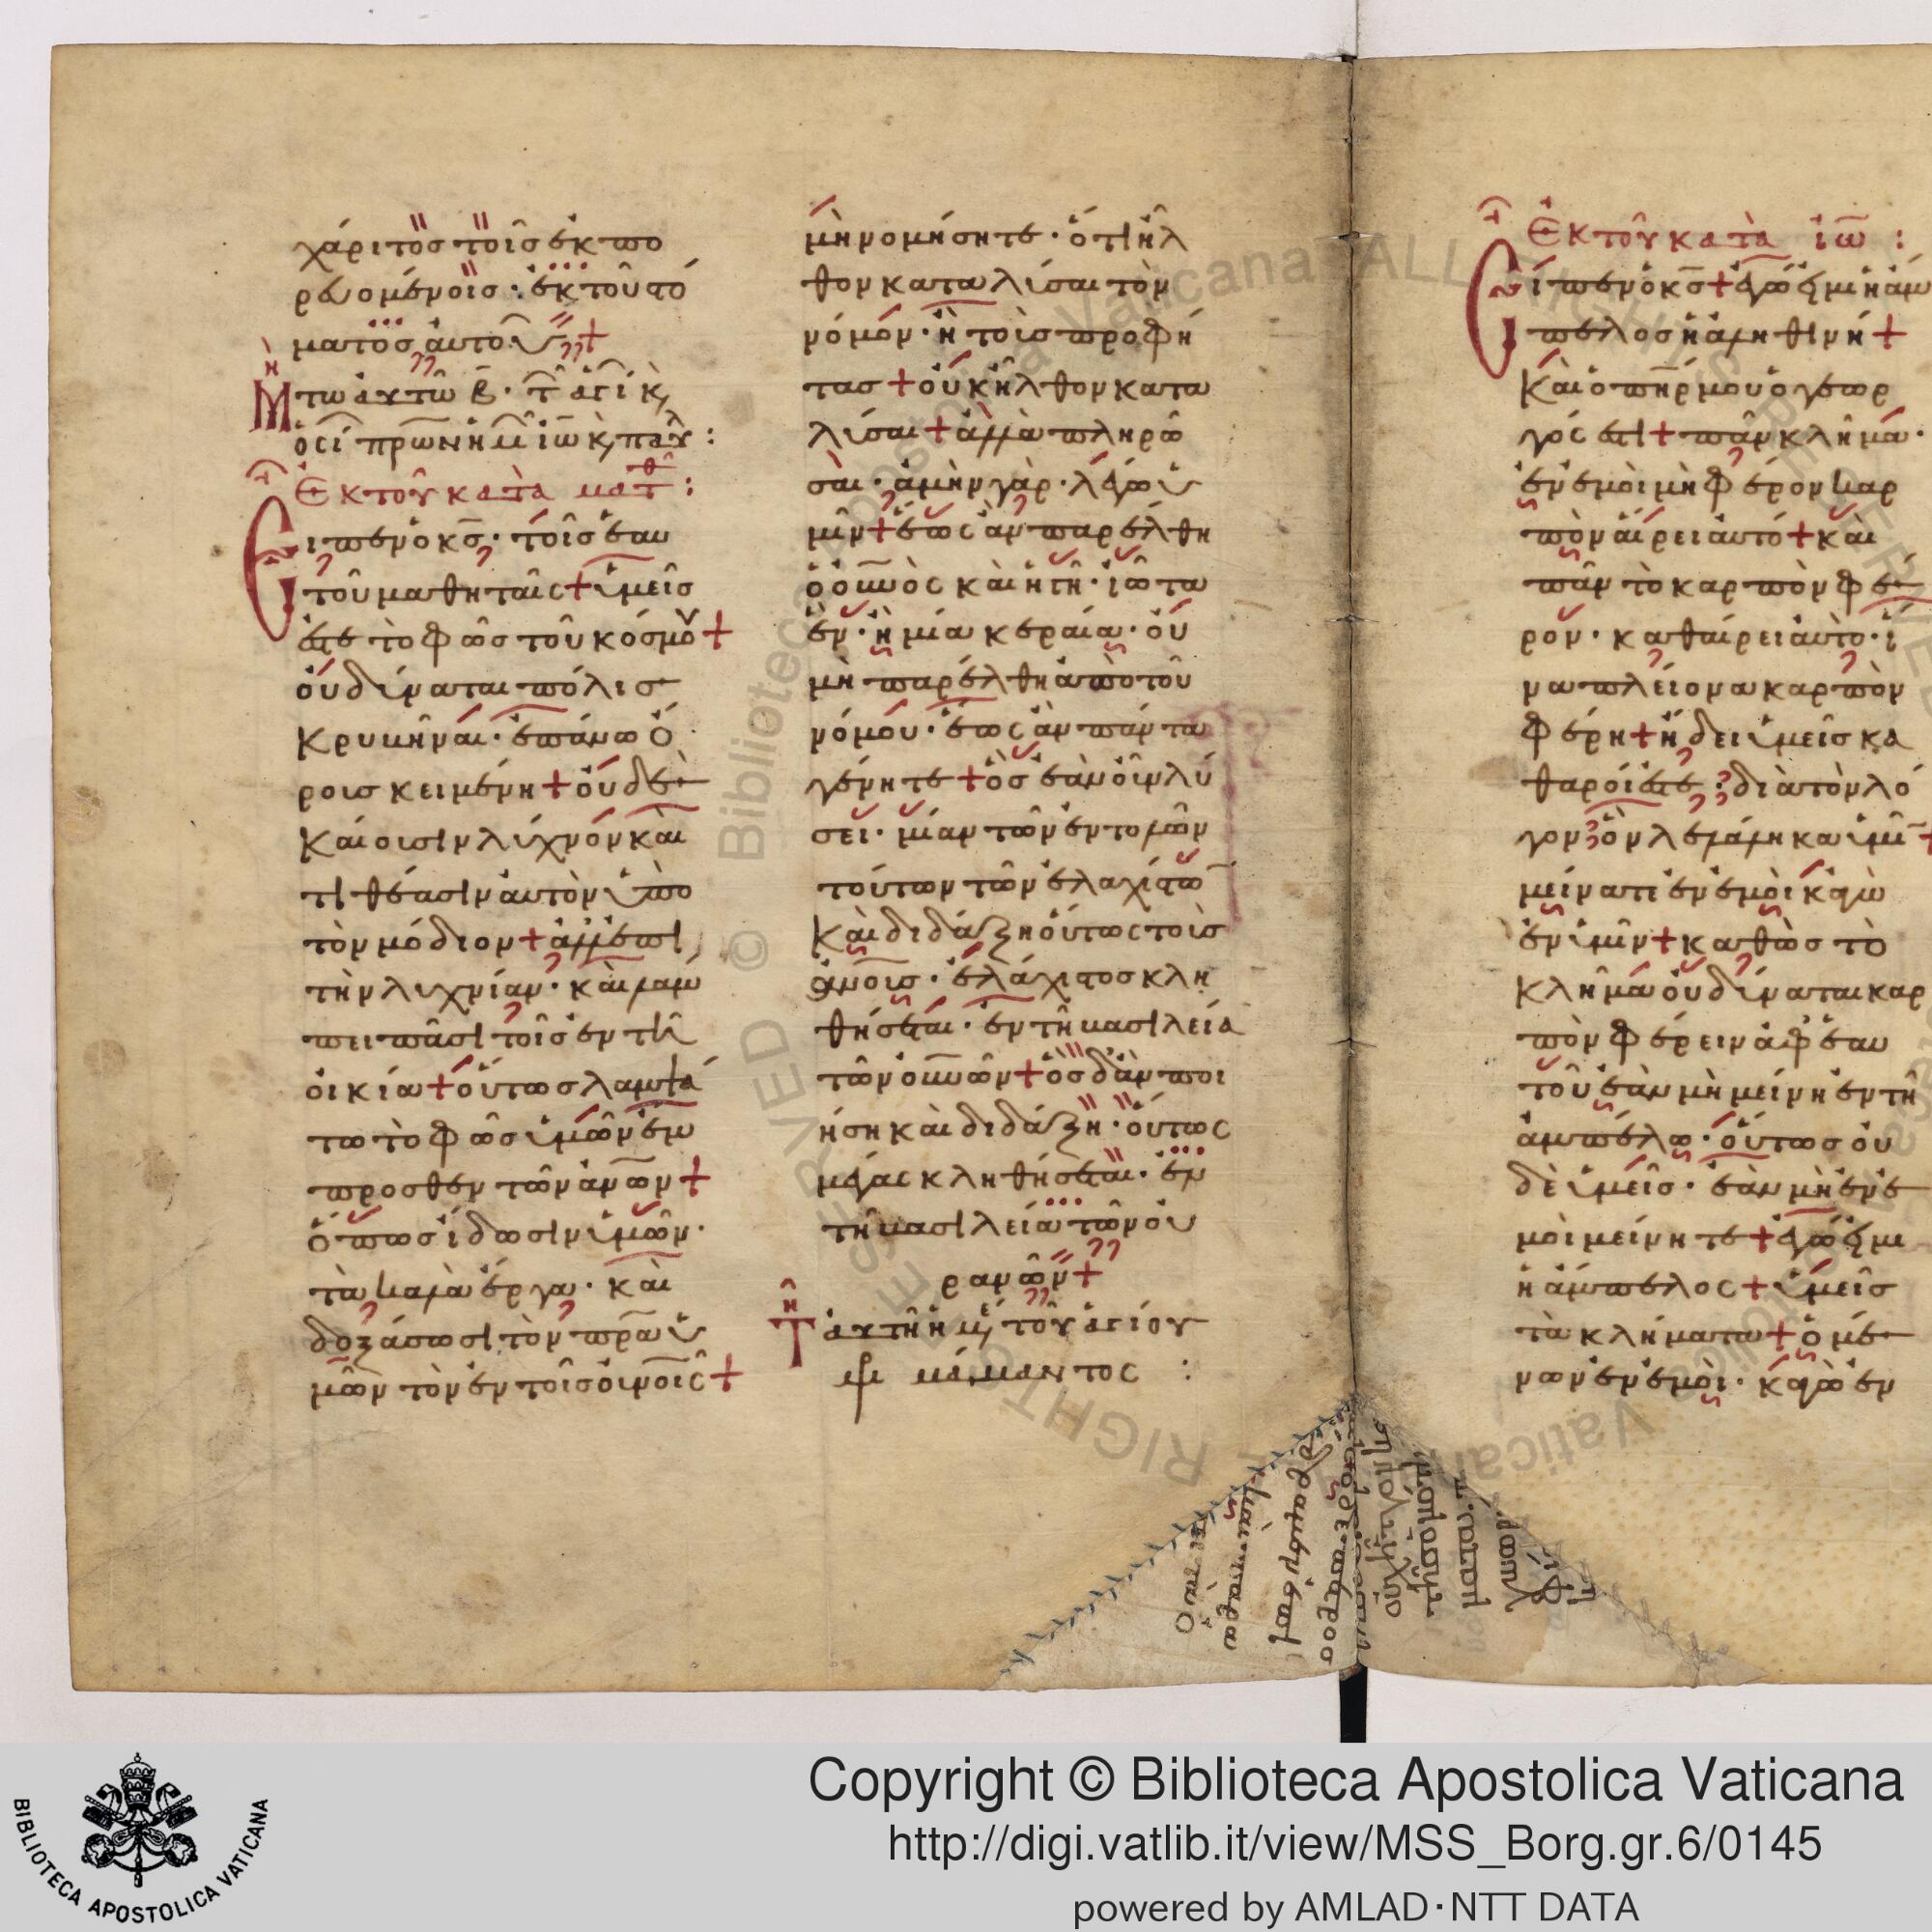 χάριτος τοῖς ἐκπο
ρευομένοις· ἐκ τοῦ στό
ματος αὐτοῦ +
Μη τω αυτω β· τ αγι κ,
οσι πρων ημ ιω κ, παυ :
Εκ του κατὰ ματθ :
Ειπεν ο κς· τοῖς ἑαυ
τοῦ μαθηταῖς + ὑμεῖς
ἐστε τὸ φῶς τοῦ κόσμου +
οὐ δύναται πόλις
κρυβῆναι· ἐπάνω ὄ
ρους κειμένη + οὐδὲ
καίουσιν λύχνον καὶ
τιθέασιν αὐτὸν ὑπὸ
τὸν μόδιον + ἀλλ' ἐπὶ
τὴν λυχνίαν· καὶ λάμ
πει πᾶσι τοῖς ἐν τῆ
οἰκία + οὕτως λαμψά
τω τὸ φῶς ὑμῶν ἔμ
προσθεν τῶν ἀνων +
ὅπως ἴδωσιν ὑμῶν·
τὰ καλὰ ἔργα· καὶ
δοξάσωσι τὸν πρα ὑ
μῶν τὸν ἐν τοῖς οὐνοις +
μὴ νομήσητε· ὅτι ἦλ
θον καταλύσαι τὸν
νόμον· ἢ τοὺς προφή
τας + οὐκ ἦλθον κατα
λύσαι + ἀλλὰ πληρῶ
σαι· ἀμὴν γὰρ· λέγω ὑ
μῖν + ἕως ἂν παρέλθη
ὁ οὐνὸς καὶ ἡ γῆ· ἰῶτα
ἓν· ἢ μία κεραία· οὐ
μὴ παρέλθη ἀπὸ τοῦ
νόμου· ἕως ἂν πάντα
γένητε + ὃς ἐὰν οὖν λύ
σει· μίαν τῶν ἐντολῶν
τούτων τῶν ἐλαχίστω
καὶ διδάξη οὕτως τοὺς
ἀνους· ἐλάχιστος κλη
θήσεται· ἐν τῆ βασιλεία
τῶν οὐνῶν + ὃς δ' ἂν ποι
ήση καὶ διδάξη· οὕτως
μέγας κληθήσεται· ἐν
τῆ βασιλεία τῶν οὐ
ρανῶν +
Τη αυτῆ ἡμ, τοῦ ἁγίου
μάμαντος :
Εκ τοῦ κατὰ ιω :
Εἶπεν ὁ κς + ἐγώ εἰμι ἡ ἄμ
πελος ἡ ἀληθινή +
Καὶ ὁ πηρ μου ὁ γεωρ
γός ἐστι + πᾶν κλῆμα·
ἐν ἐμοὶ μὴ φέρον καρ
πὸν αἴρει αὐτό + καὶ
πᾶν τὸ καρπὸν φέ
ρον· καθαίρει αὐτό· ἵ
να πλείονα καρπὸν
φέρη + ἤδει ὑμεῖς κα
θαροί ἐστε· διὰ τὸν λό
γον ὃν λελάληκα ὑμῖ +
μείνατε ἐν ἐμοὶ κἀγὼ
ἐν ὑμῖν + καθὼς τὸ
κλῆμα οὐ δύναται καρ
πὸν φέρειν ἀφ' ἑαυ
τοῦ ἐὰν μὴ μείνη ἐν τῆ
ἀμπέλω· οὕτως οὐ
δὲ ὑμεῖς· ἐὰν μὴ ἐν ἐ
μοὶ μείνητε + ἐγώ εἰμι
ἡ ἄμπελος + ὑμεῖς
τὰ κλήματα + ὁ μέ
νων ἐν ἐμοὶ· κἀγὼ ἐν
Biblioteca Apostolica Vaticana ALL RIGHTS RESERVED ©
Copyright © Biblioteca Apostolica Vaticana
http://digi.vatlib.it/view/MSS_Borg.gr.6/0145
powered by AMLAD·NTT DATA
BIBLIOTECA APOSTOLICA VATICANA